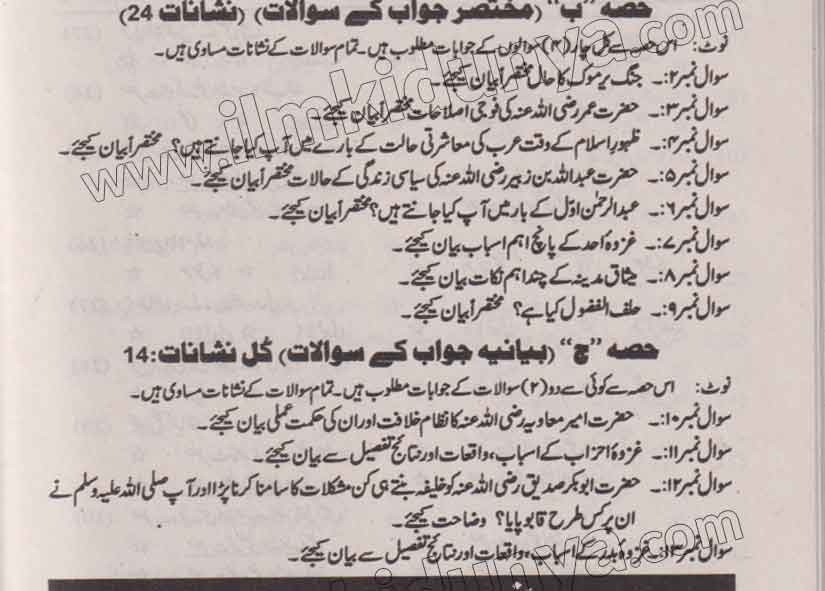 حصہ "ب" (مختصر جواب کے سوالات) (نشانات 24)
نوٹ:۔ اس حصہ سے کل چار (۴) سوالوں کے جوابات مطلوب ہیں۔ تمام سوالات کے نشانات مساوی ہیں۔
سوال نمبر۲:۔ جنگ یرموک کا حال مختصراً بیان کیجئے۔
سوال نمبر۳:۔ حضرت عمر رضی اللہ عنہ کی فوجی اصلاحات مختصراً بیان کیجئے۔
سوال نمبر۴:۔ ظہور اسلام کے وقت عرب کی معاشرتی حالت کے بارے میں آپ کیا جانتے ہیں؟ مختصراً بیان کیجئے۔
سوال نمبر۵:۔ حضرت عبداللہ بن زبیر رضی اللہ عنہ کی سیاسی زندگی کے حالات مختصراً بیان کیجئے۔
سوال نمبر۶:۔ عبدالرحمٰن اوّل کے بار میں آپ کیا جانتے ہیں؟ مختصراً بیان کیجئے۔
سوال نمبر۷:۔ غزوہ اُحد کے پانچ اہم اسباب بیان کیجئے۔
سوال نمبر۸:۔ میثاق مدینہ کے چند اہم نکات بیان کیجئے۔
سوال نمبر۹:۔ حلف الفضول کیا ہے؟ مختصراً بیان کیجئے۔
حصہ "ج" (بیانیہ جواب کے سوالات) کُل نشانات: 14
نوٹ:۔ اس حصہ سے کوئی سے دو (۲) سوالات کے جوابات مطلوب ہیں۔ تمام سوالات کے نشانات مساوی ہیں۔
سوال نمبر۱۰:۔ حضرت امیر معاویہ رضی اللہ عنہ کا نظام خلافت اور ان کی حکمت عملی بیان کیجئے۔
سوال نمبر۱۱:۔ غزوۂ احزاب کے اسباب، واقعات اور نتائج تفصیل سے بیان کیجئے۔
سوال نمبر۱۲:۔ حضرت ابوبکر صدیق رضی اللہ عنہ کو خلیفہ بنتے ہی کن مشکلات کا سامنا کرنا پڑا اور آپ صلی اللہ علیہ وسلم نے
ان پر کس طرح قابو پایا؟ وضاحت کیجئے۔
سوال نمبر۱۳:۔ غزوۂ بدر کے اسباب، واقعات اور نتائج تفصیل سے بیان کیجئے۔
www.ilmkidunya.com